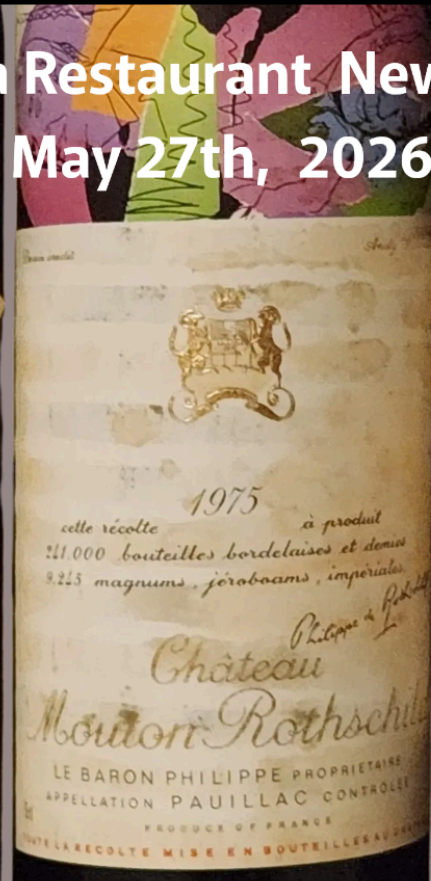 Restaurant New
May 27th, 2026
1975
cette récolte à produit
241.000 bouteilles bordelaises et demies
9.245 magnums, jéroboams, impériales
Philippe de Rothschild
Château
Mouton Rothschild
LE BARON PHILIPPE PROPRIETAIRE
APPELLATION PAUILLAC CONTROLÉE
PRODUCE OF FRANCE
TOUTE LA RECOLTE MISE EN BOUTEILLES AU